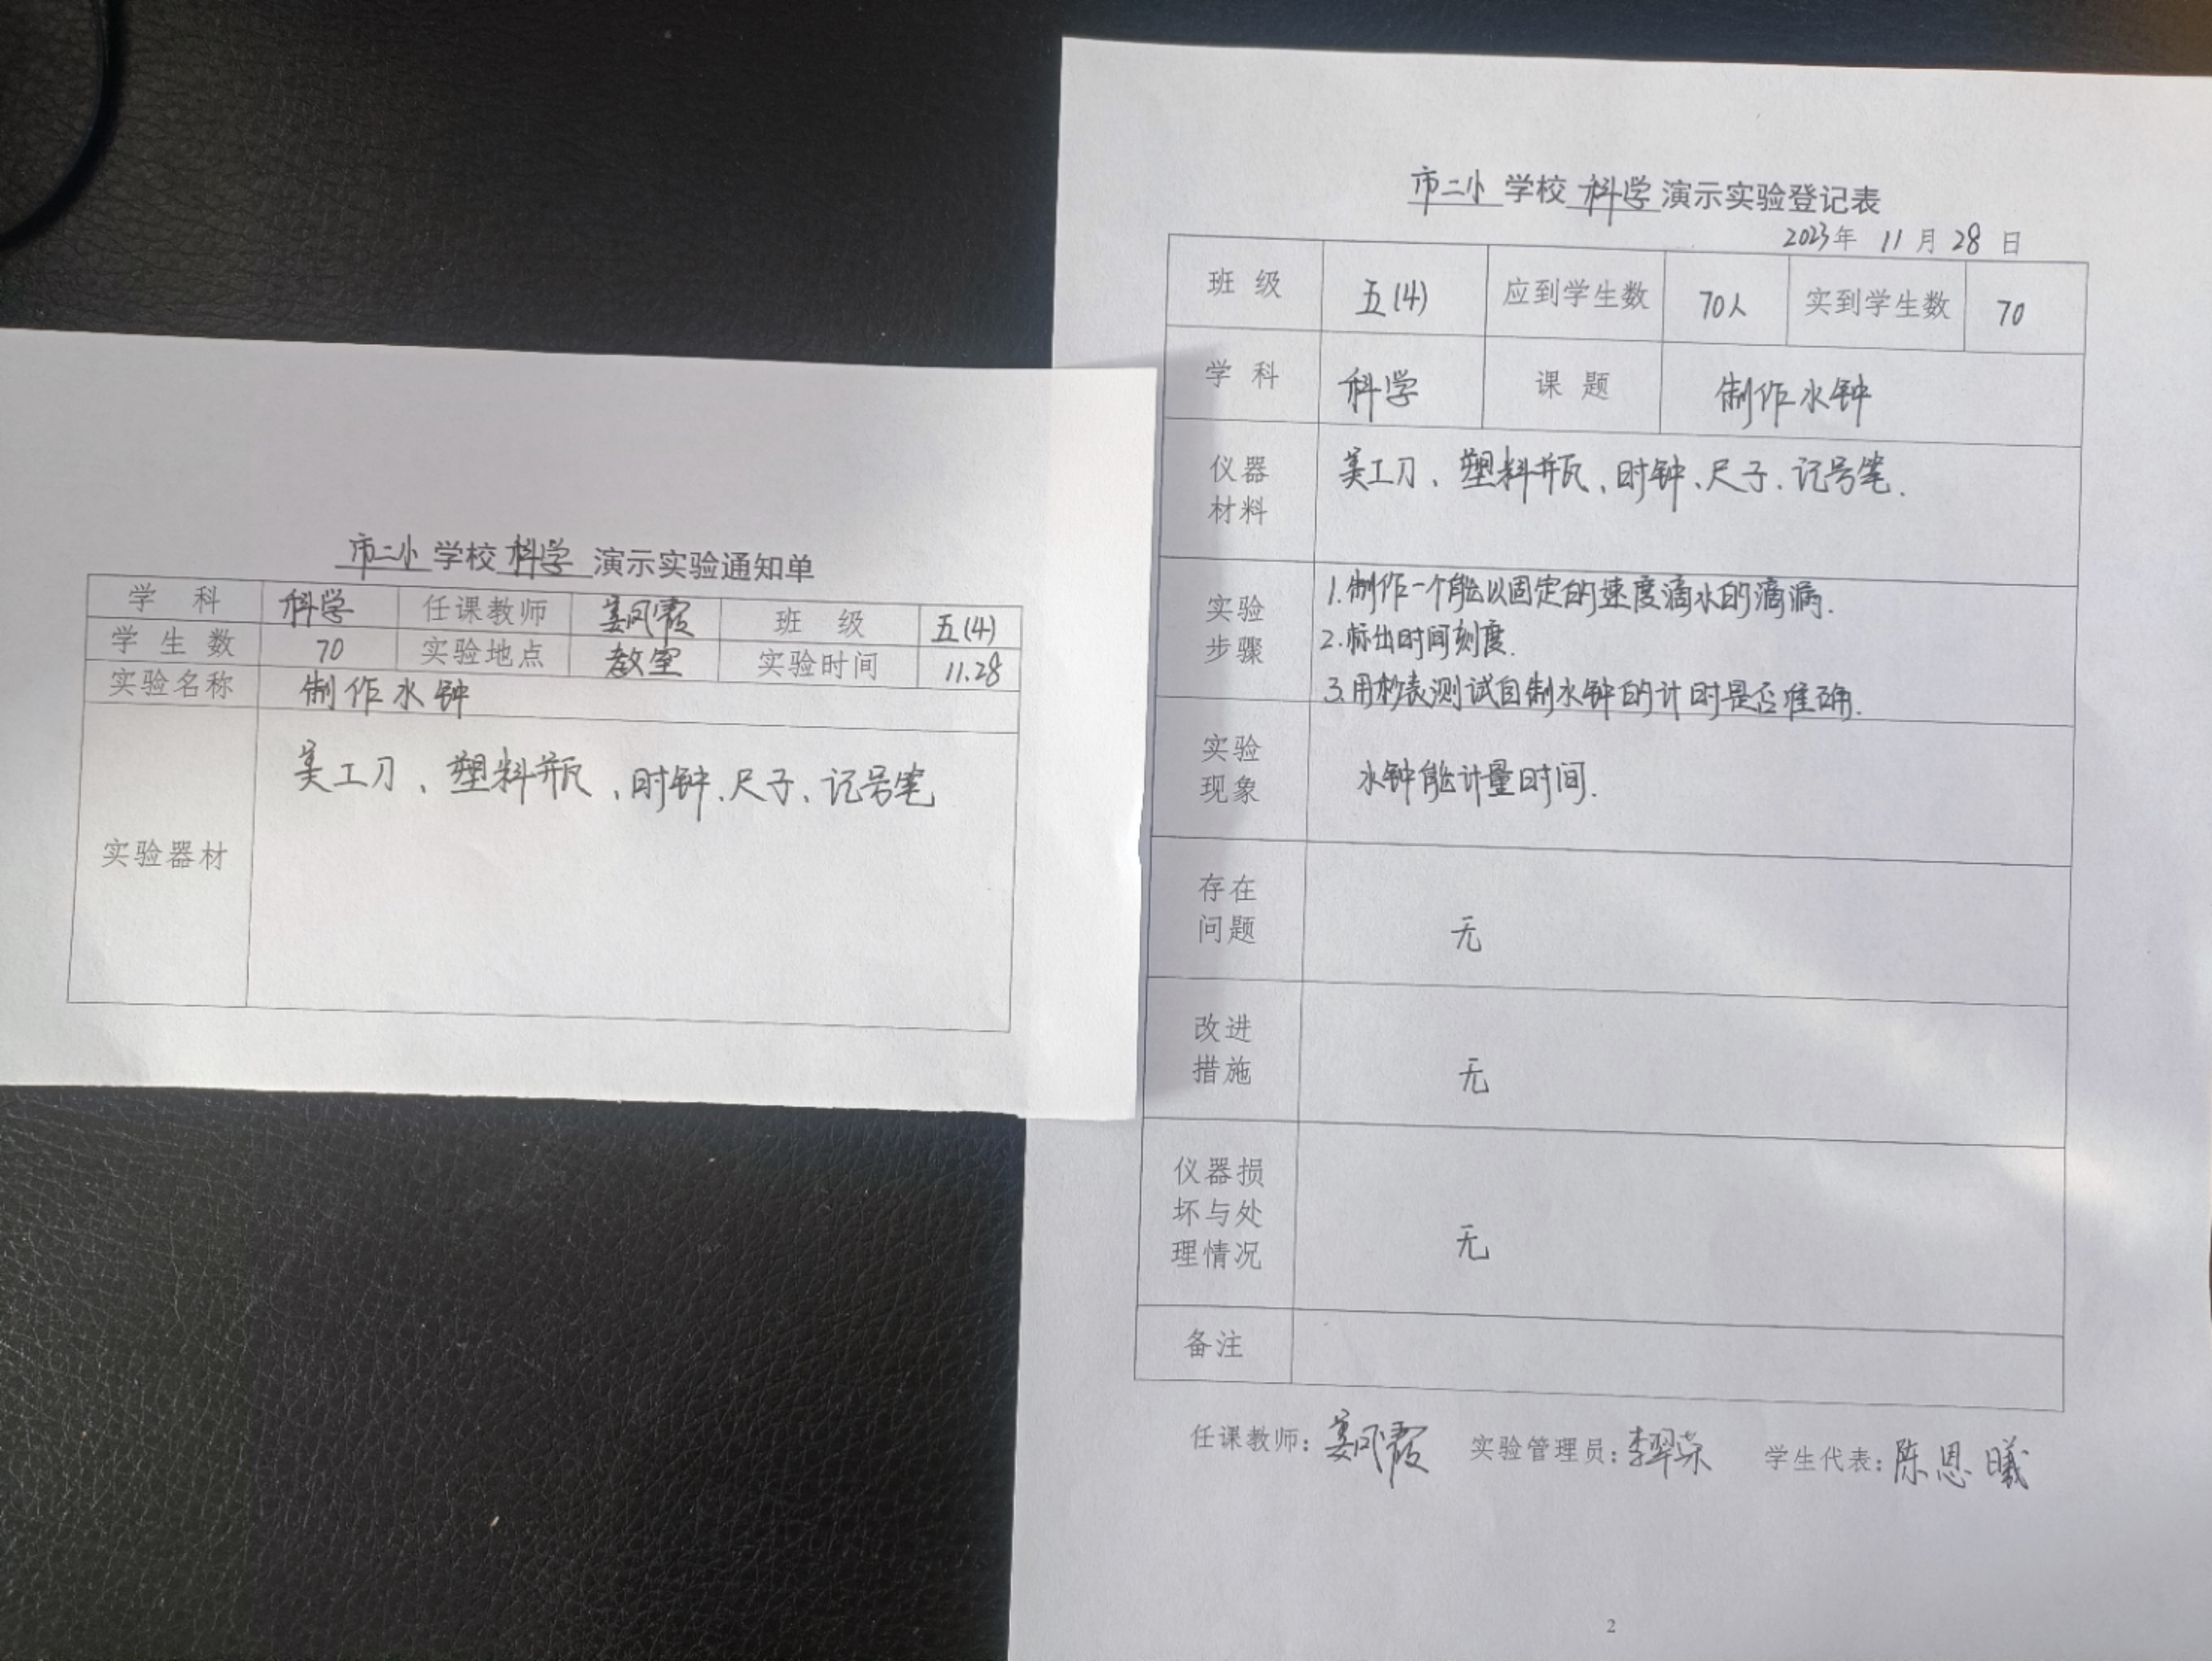 市二小 学校 科学 演示实验通知单
学 科 科学 任课教师 姜凤霞 班 级 五(4)
学 生 数 70 实验地点 教室 实验时间 11.28
实验名称 制作水钟
实验器材 美工刀、塑料瓶、时钟、尺子、记号笔
市二小 学校 科学 演示实验登记表
2023年 11月 28日
班 级 五(4) 应到学生数 70人 实到学生数 70
学 科 科学 课 题 制作水钟
仪器
材料
美工刀、塑料瓶、时钟、尺子、记号笔.
实验
步骤
1.制作一个能以固定的速度滴水的滴漏.
2.标出时间刻度.
3.用秒表测试自制水钟的计时是否准确.
实验
现象
水钟能计量时间.
存在
问题
无
改进
措施
无
仪器损
坏与处
理情况
无
备注
任课教师：姜凤霞 实验管理员：李翠荣 学生代表：陈恩曦
2